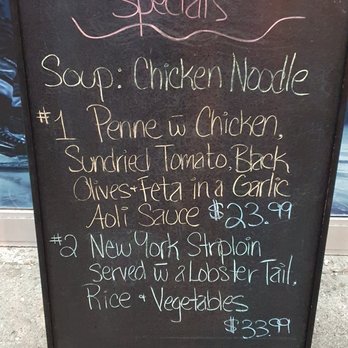 Specials
Soup: Chicken Noodle
#1 Penne w̄ Chicken,
Sundried Tomato, Black
Olives + Feta in a Garlic
Aoli Sauce $23.99
#2 New York Striploin
served w̄ a Lobster Tail,
Rice + Vegetables
$33.99